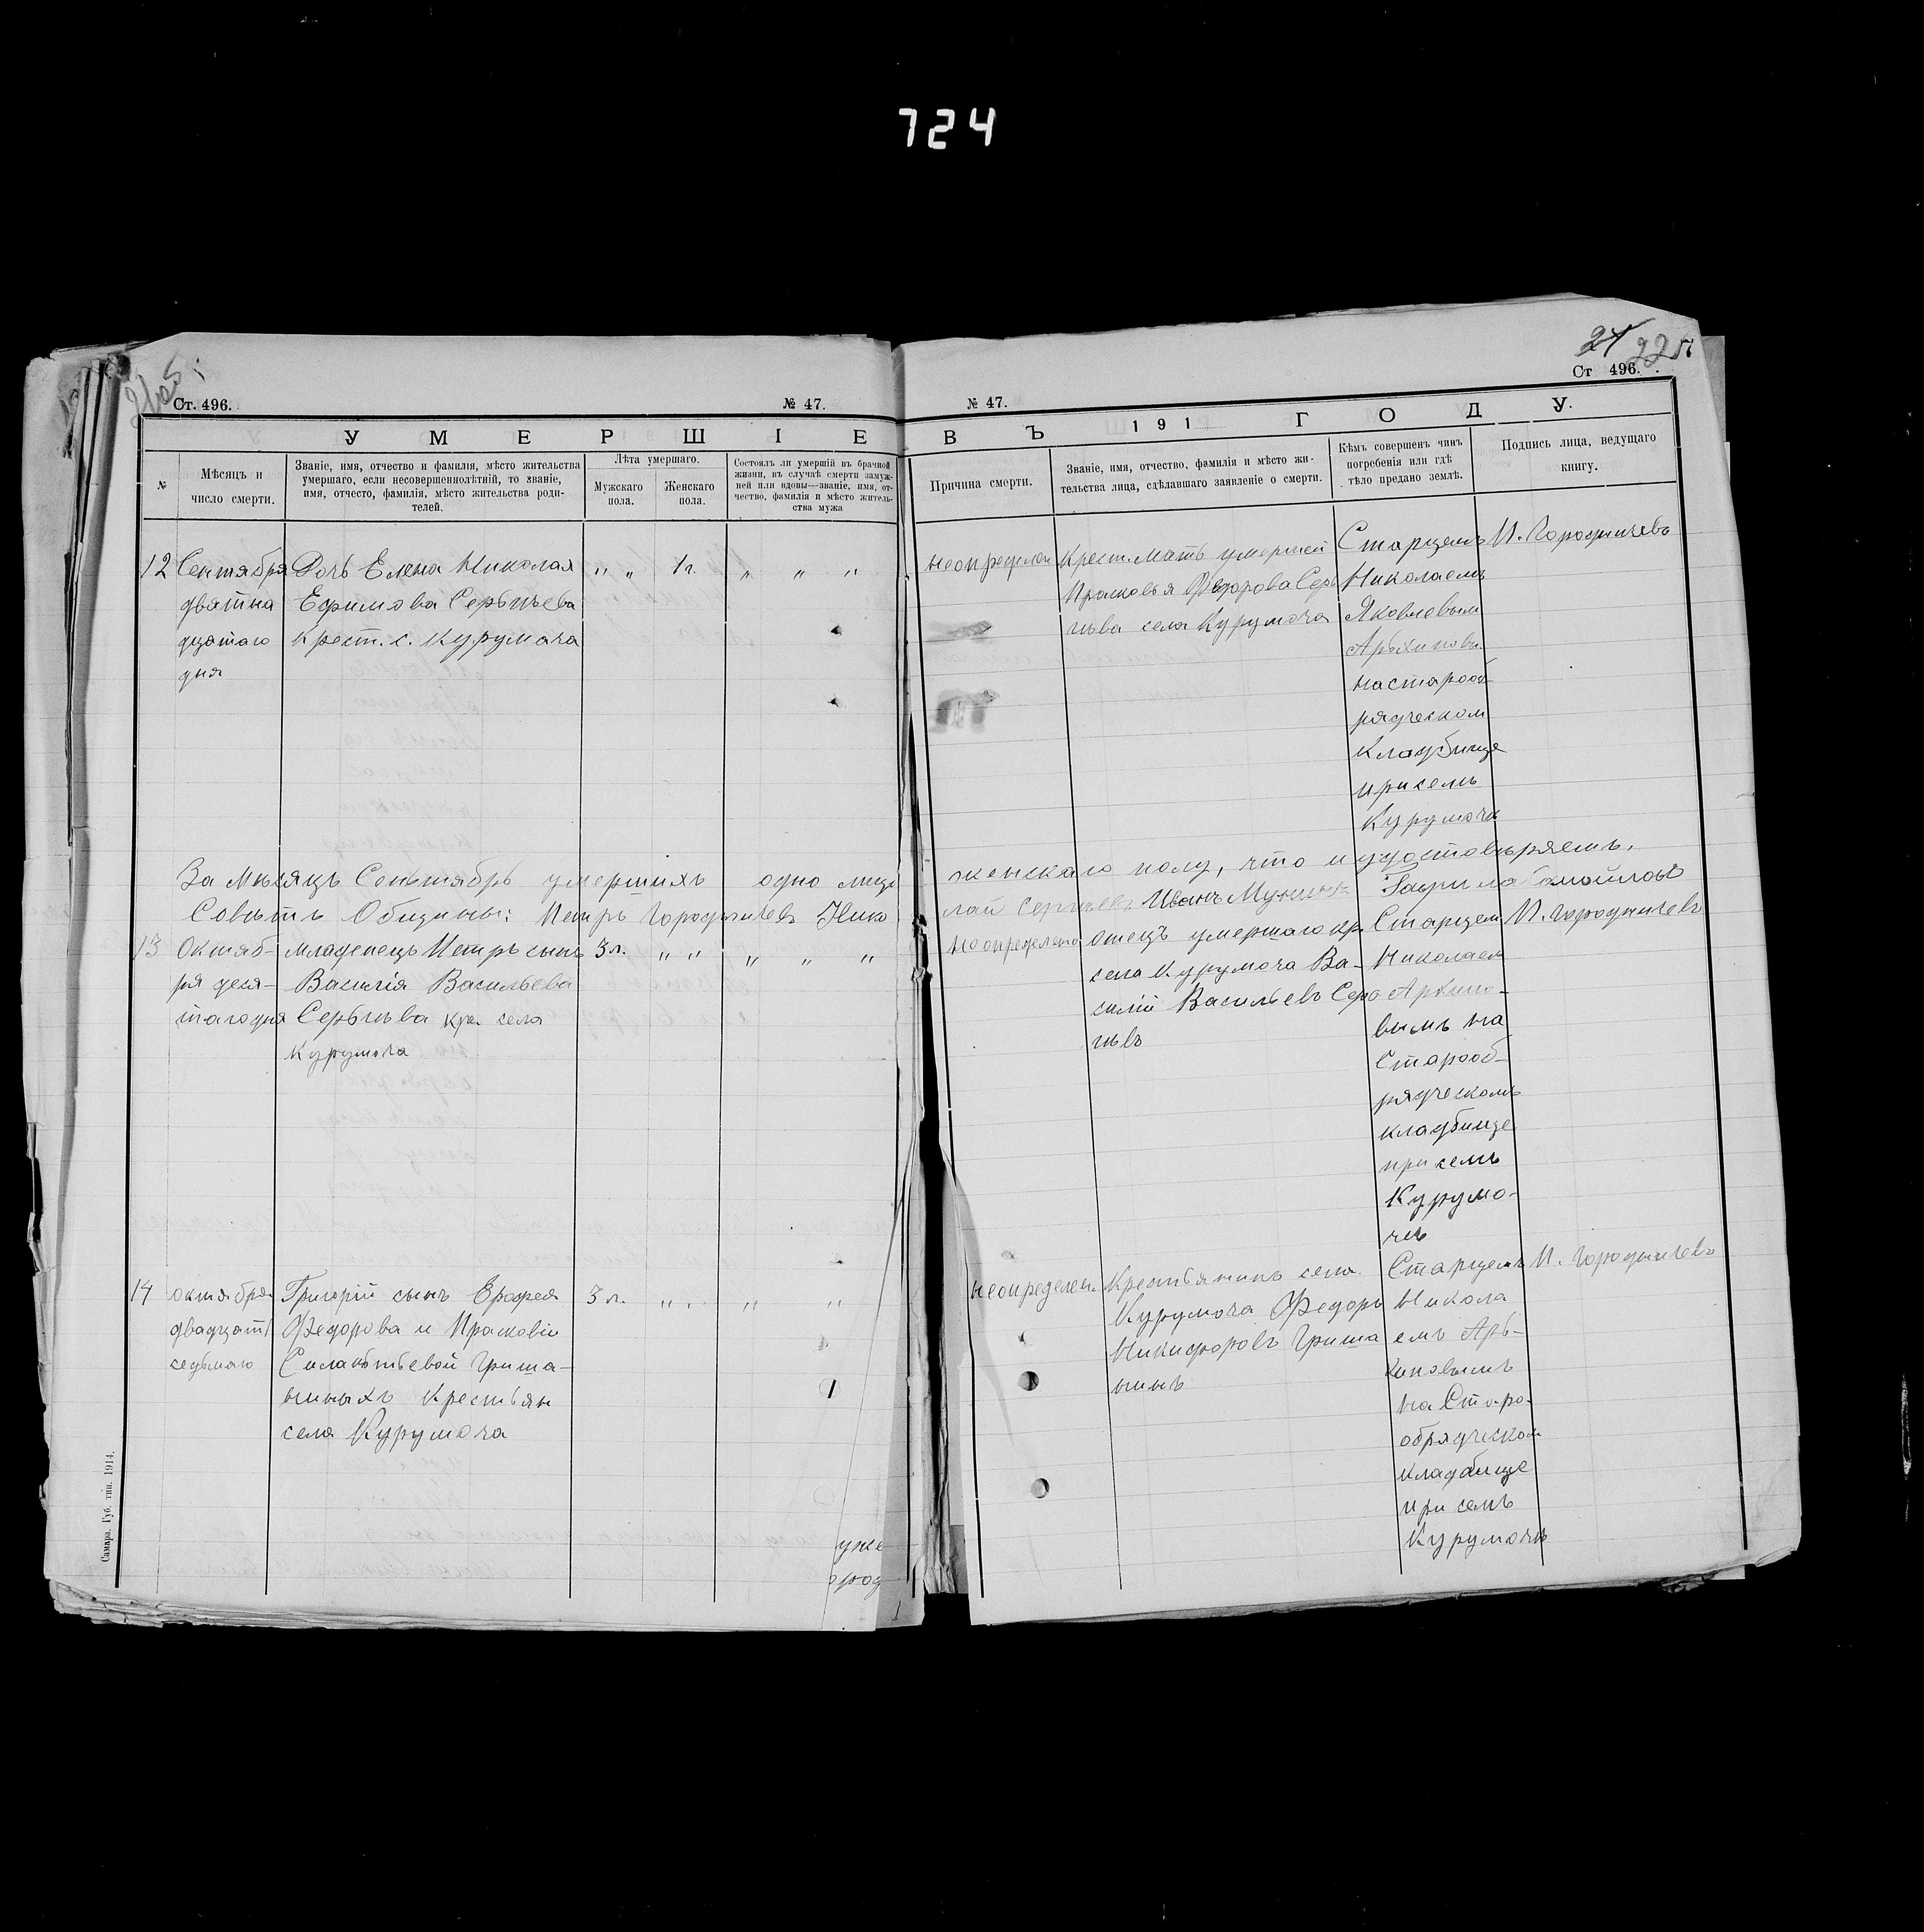 724
24 22
Ст. 496. № 47.
№ 47. Ст 496.
У М Е Р Ш І Е
В Ъ 191 Г О Д У.
№
Мѣсяцъ и
число смерти.
Званіе, имя, отчество и фамилія, мѣсто жительства
умершаго, если несовершеннолѣтній, то званіе,
имя, отчесто, фамилія, мѣсто жительства роди-
телей.
Лѣта умершаго.
Мужскаго
пола.
Женскаго
пола.
Состоялъ ли умершій въ брачной
жизни, въ случаѣ смерти замуж-
ней или вдовы—званіе, имя, от-
чество, фамилія и мѣсто житель-
ства мужа
Причина смерти.
Званіе, имя, отчество, фамилія и мѣсто жи-
тельства лица, сдѣлавшаго заявленіе о смерти.
Кѣмъ совершенъ чинъ
погребенія или гдѣ
тѣло предано землѣ.
Подпись лица, ведущаго
книгу.
12
Сентября
двятна
дцатаго
дня
Дочь Елена Николая
Ефимова
крест. с. Курумоча
" "
1 г.
" " "
неопределен
Крест. мать умершей
Прасковья Федорова Серь
села Курумоча
Старцемъ
Николаемъ
Яковлевым
на старооб-
рядческом
кладбище
при селѣ
Курумочѣ
П. Городничевъ
За мѣсяцъ Сентябрь умершихъ одно лице
женскаго полу, что и удостовѣряемъ.
Совѣтъ Общины: Петръ Городничевъ Нико
лай Сергѣевъ Иванъ Гаврила
13
Октяб-
ря деся-
таго дня
младенецъ Петръ сынъ
Василія Васильева
кре. села
Курумоча
3 л.
" "
" " "
неопределено
отецъ умершаго кр.
села Курумоча Ва-
силій Васильевъ
Старцем
Николаем
Архипо-
вымъ на
Старооб-
рядческомъ
кладбище
при селѣ
Курумо-
чѣ
П. Городничевъ
14
октября
двадцать
седьмаго
Григорій сынъ Ерофея
Федорова и Прасковіи
Гриша-
ниныхъ Крестьян
села Курумоча
3 л.
" "
" "
неопределен
Крестьянинъ села
Курумоча Федоръ
Никифоровъ Гриша
нинъ
Старцемъ
Никола
емъ Арь-
хиповымъ
на Старо-
обрядческом
кладбище
при селѣ
Курумочѣ
П. Городничевъ
Самара. Губ. тип. 1914.